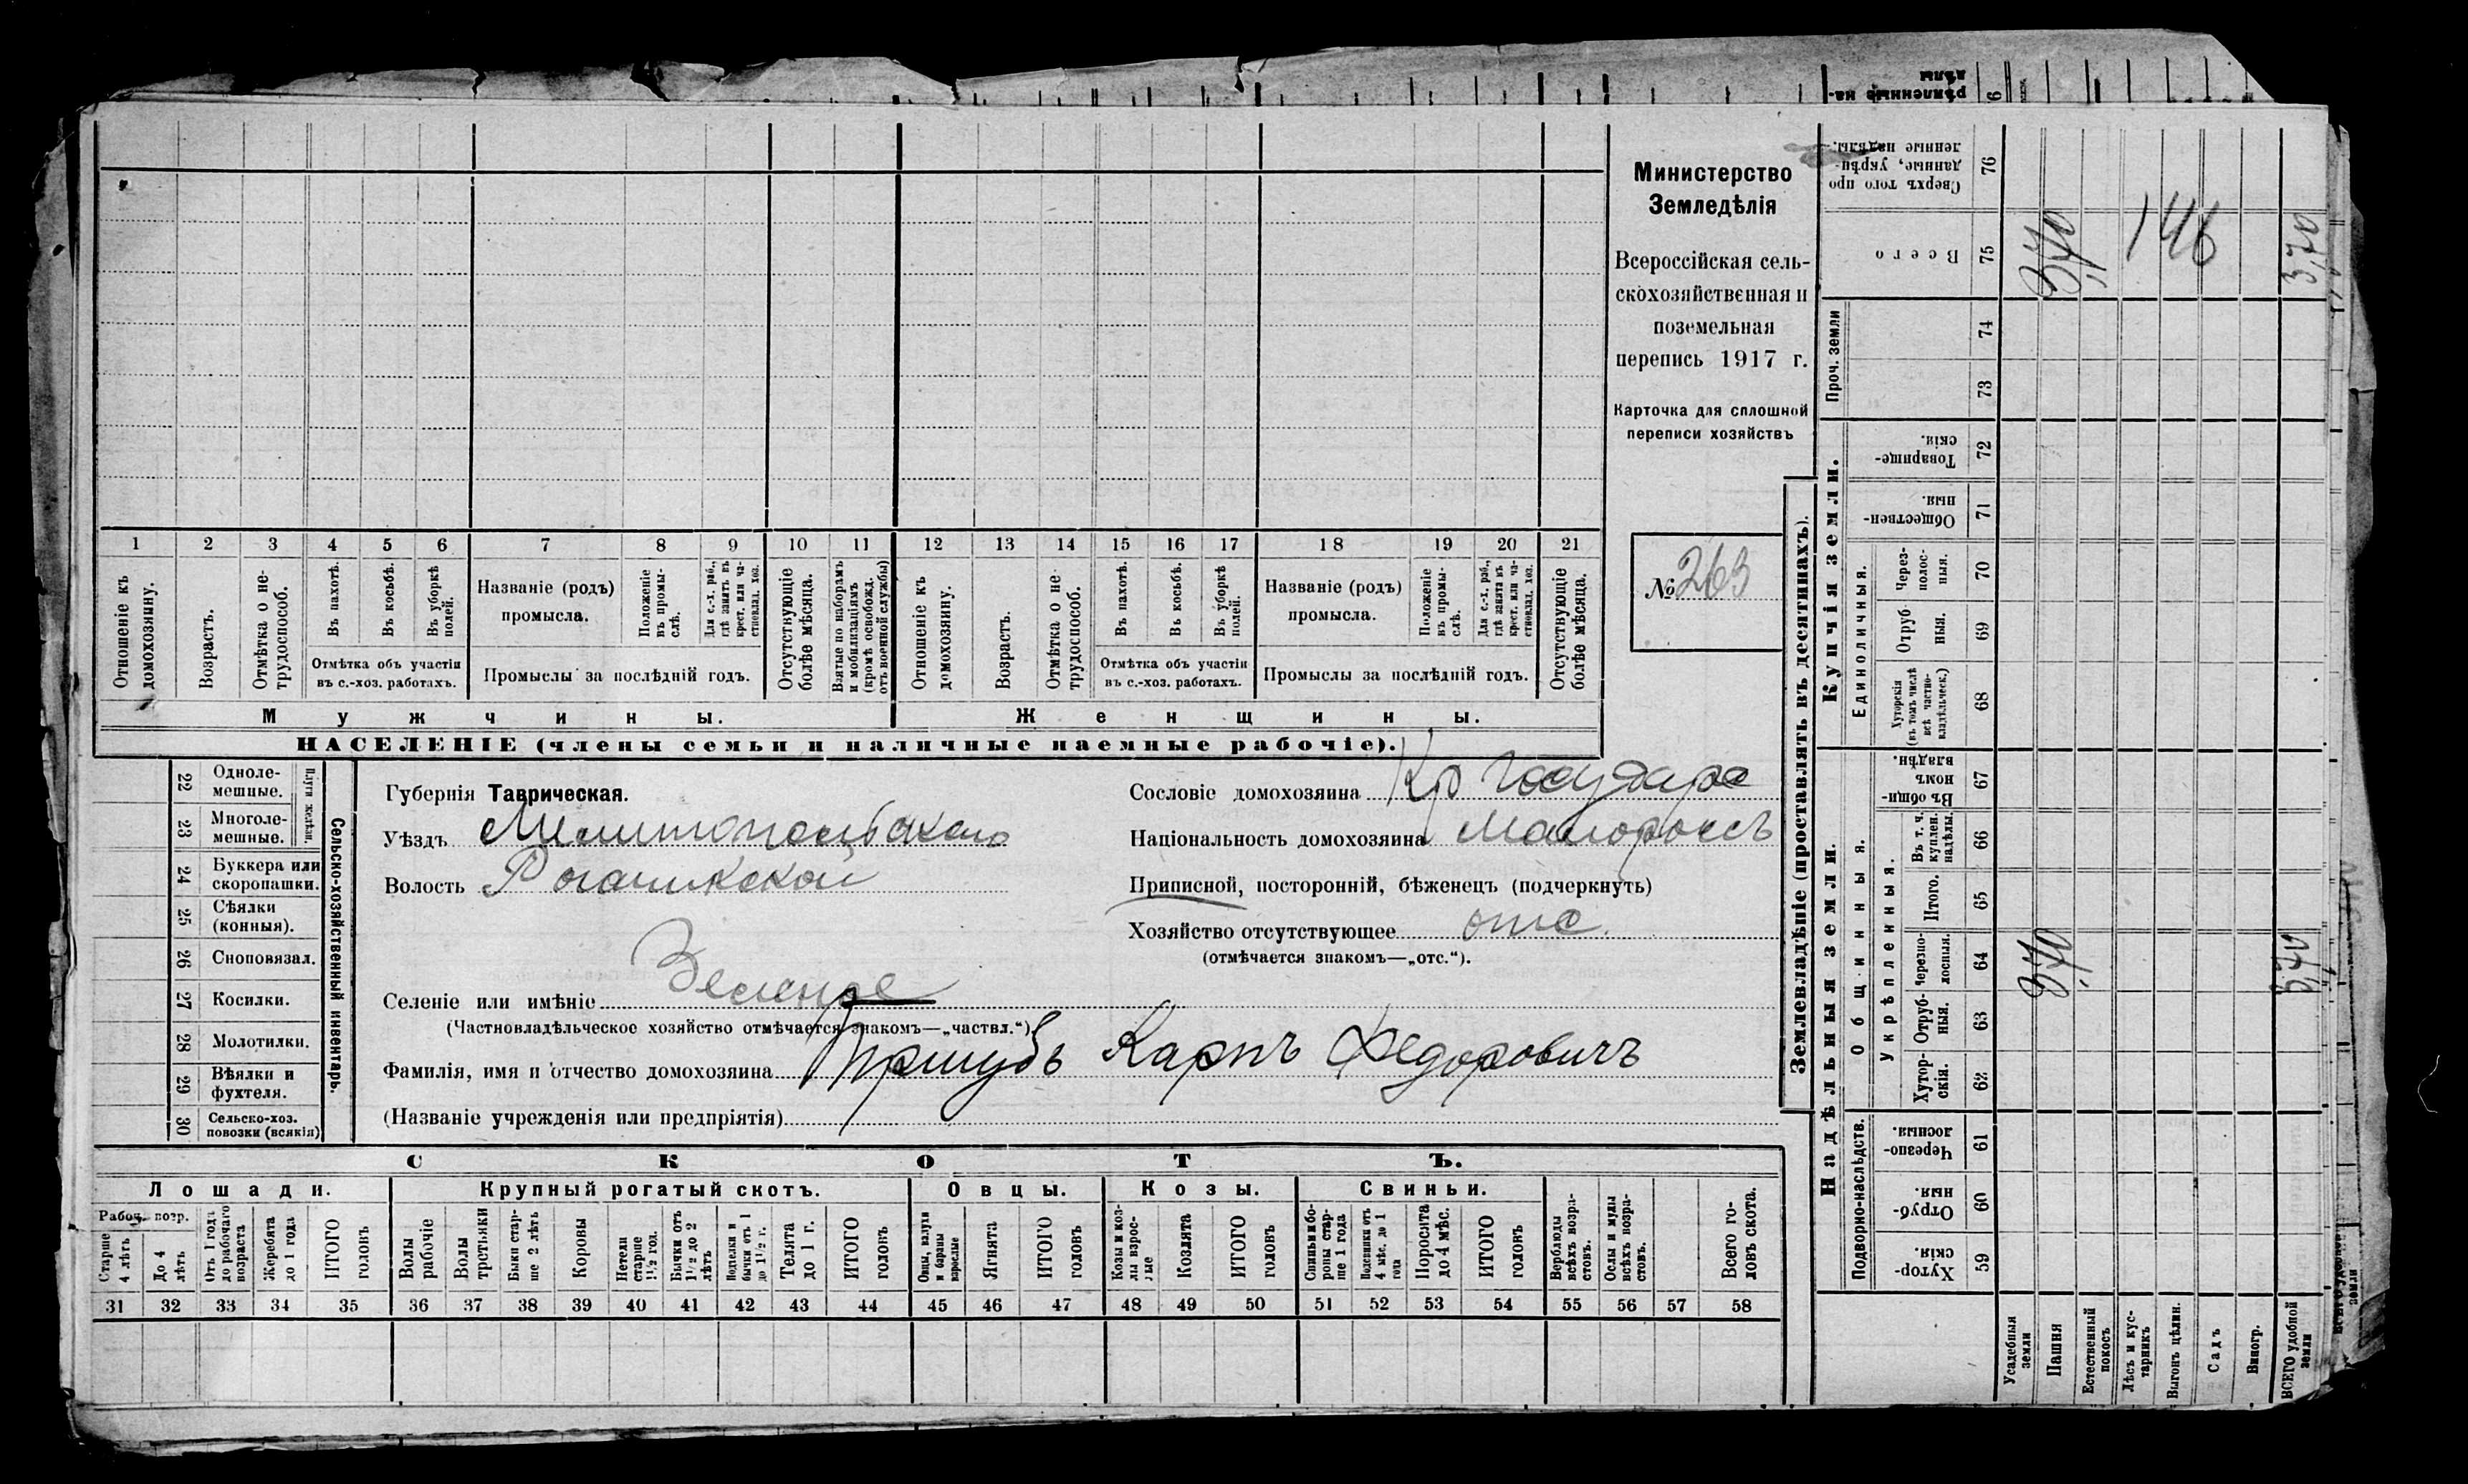 Министерство
Земледѣлія
Всероссійская сель-
скохозяйственная и
поземельная
перепись 1917 г.
Карточка для сплошной
переписи хозяйствъ
№ 263
1 2 3 4 5 6 7 8 9 10 11 12 13 14 15 16 17 18 19 20 21
Отношеніе къ домохозяину.
Возрастъ.
Отмѣтка о не-трудоспособ.
Въ пахотѣ.
Въ косьбѣ.
Въ уборкѣ полей.
Отмѣтка объ участіи
въ с.-хоз. работахъ.
Названіе (родъ)
промысла.
Положеніе въ промы-слѣ.
Для с.-х. раб., гдѣ занятъ въ крест. или ча-стновлад. хоз.
Промыслы за послѣдній годъ.
Отсутствующіе болѣе мѣсяца.
Взятые по наборамъ и мобилизаціямъ (кромѣ освобожд. отъ военной службы)
Отношеніе къ домохозяину.
Возрастъ.
Отмѣтка о не трудоспособ.
Въ пахотѣ.
Въ косьбѣ.
Въ уборкѣ полей.
Отмѣтка объ участіи
въ с.-хоз. работахъ.
Названіе (родъ)
промысла.
Положеніе въ промы-слѣ.
Для с.-х. раб., гдѣ занята въ крест. или ча-стновлад. хоз.
Промыслы за послѣдній годъ.
Отсутствующіе болѣе мѣсяца.
Мужчины. Женщины.
НАСЕЛЕНІЕ (члены семьи и наличные наемные рабочіе).
22 Одноле-мешные.
23 Многоле-мешные.
Плуги желѣзн.
24 Буккера или скоропашки.
25 Сѣялки (конныя).
26 Сноповязал.
27 Косилки.
28 Молотилки.
29 Вѣялки и фухтеля.
30 Сельско-хоз. повозки (всякія)
Сельско-хозяйственный инвентарь.
Губернія Таврическая.
Уѣздъ Мелитопольскаго
Волость Рогачикской
Селеніе или имѣніе
(Частновладѣльческое хозяйство отмѣчается знакомъ—„частвл.“)
Фамилія, имя и отчество домохозяина Карпъ Федоровичъ
(Названіе учрежденія или предпріятія)
Сословіе домохозяина Кр
Національность домохозяина Малороссъ
Приписной, посторонній, бѣженецъ (подчеркнуть)
Хозяйство отсутствующее отс.
(отмѣчается знакомъ—„отс.“).
СКОТЪ.
Лошади. Крупный рогатый скотъ. Овцы. Козы. Свиньи.
Рабоч. возр.
Старше 4 лѣтъ
До 4 лѣтъ
Отъ 1 года до рабочаго возраста
Жеребята до 1 года
ИТОГО головъ
Волы рабочіе
Волы третьяки
Быки стар-ше 2 лѣтъ
Коровы
Нетели старше 1½ год.
Бычки отъ 1½ до 2 лѣтъ
Подтелки и бычки отъ 1 до 1½ г.
Телята до 1 г.
ИТОГО головъ
Овцы, валухи и бараны взрослые
Ягнята
ИТОГО головъ
Козы и коз-лы взрос-лые
Козлята
ИТОГО головъ
Свиньи и бо-ровы стар-ше 1 года
Подсвинки отъ 4 мѣс. до 1 года
Поросята до 4 мѣс.
ИТОГО головъ
Верблюды всѣхъ возра-стовъ.
Ослы и мулы всѣхъ возра-стовъ.
Всего го-ловъ скота.
31 32 33 34 35 36 37 38 39 40 41 42 43 44 45 46 47 48 49 50 51 52 53 54 55 56 57 58
Землевладѣніе (проставлять въ десятинахъ).
Надѣльныя земли. Купчія земли. Проч. земли
Подворно-наслѣдств. Общинныя. Единоличныя.
Укрѣпленныя.
Хутор-скія. 59
Отруб-ныя. 60
Черезпо-лосныя. 61
Хутор-скія. 62
Отруб-ныя. 63
Черезпо-лосныя. 64
Итого. 65
Въ т. ч. куплен. надѣлы. 66
Въ общи-номъ владѣн. 67
Хуторскія (въ томъ числѣ всѣ частно-владѣльческ.) 68
Отруб-ныя. 69
Через-полос-ныя. 70
Обществен-ныя. 71
Товарище-скія. 72
73
74
Всего 75
Сверхъ того про-данные, укрѣп-ленные надѣлы. 76
Усадебныя земли
Пашня 3,70 3,70
Естественный покосъ
Лѣсъ и кус-тарникъ 146
Выгонъ цѣлин.
Садъ
Виногр.
ВСЕГО удобной земли 3,70 3,70